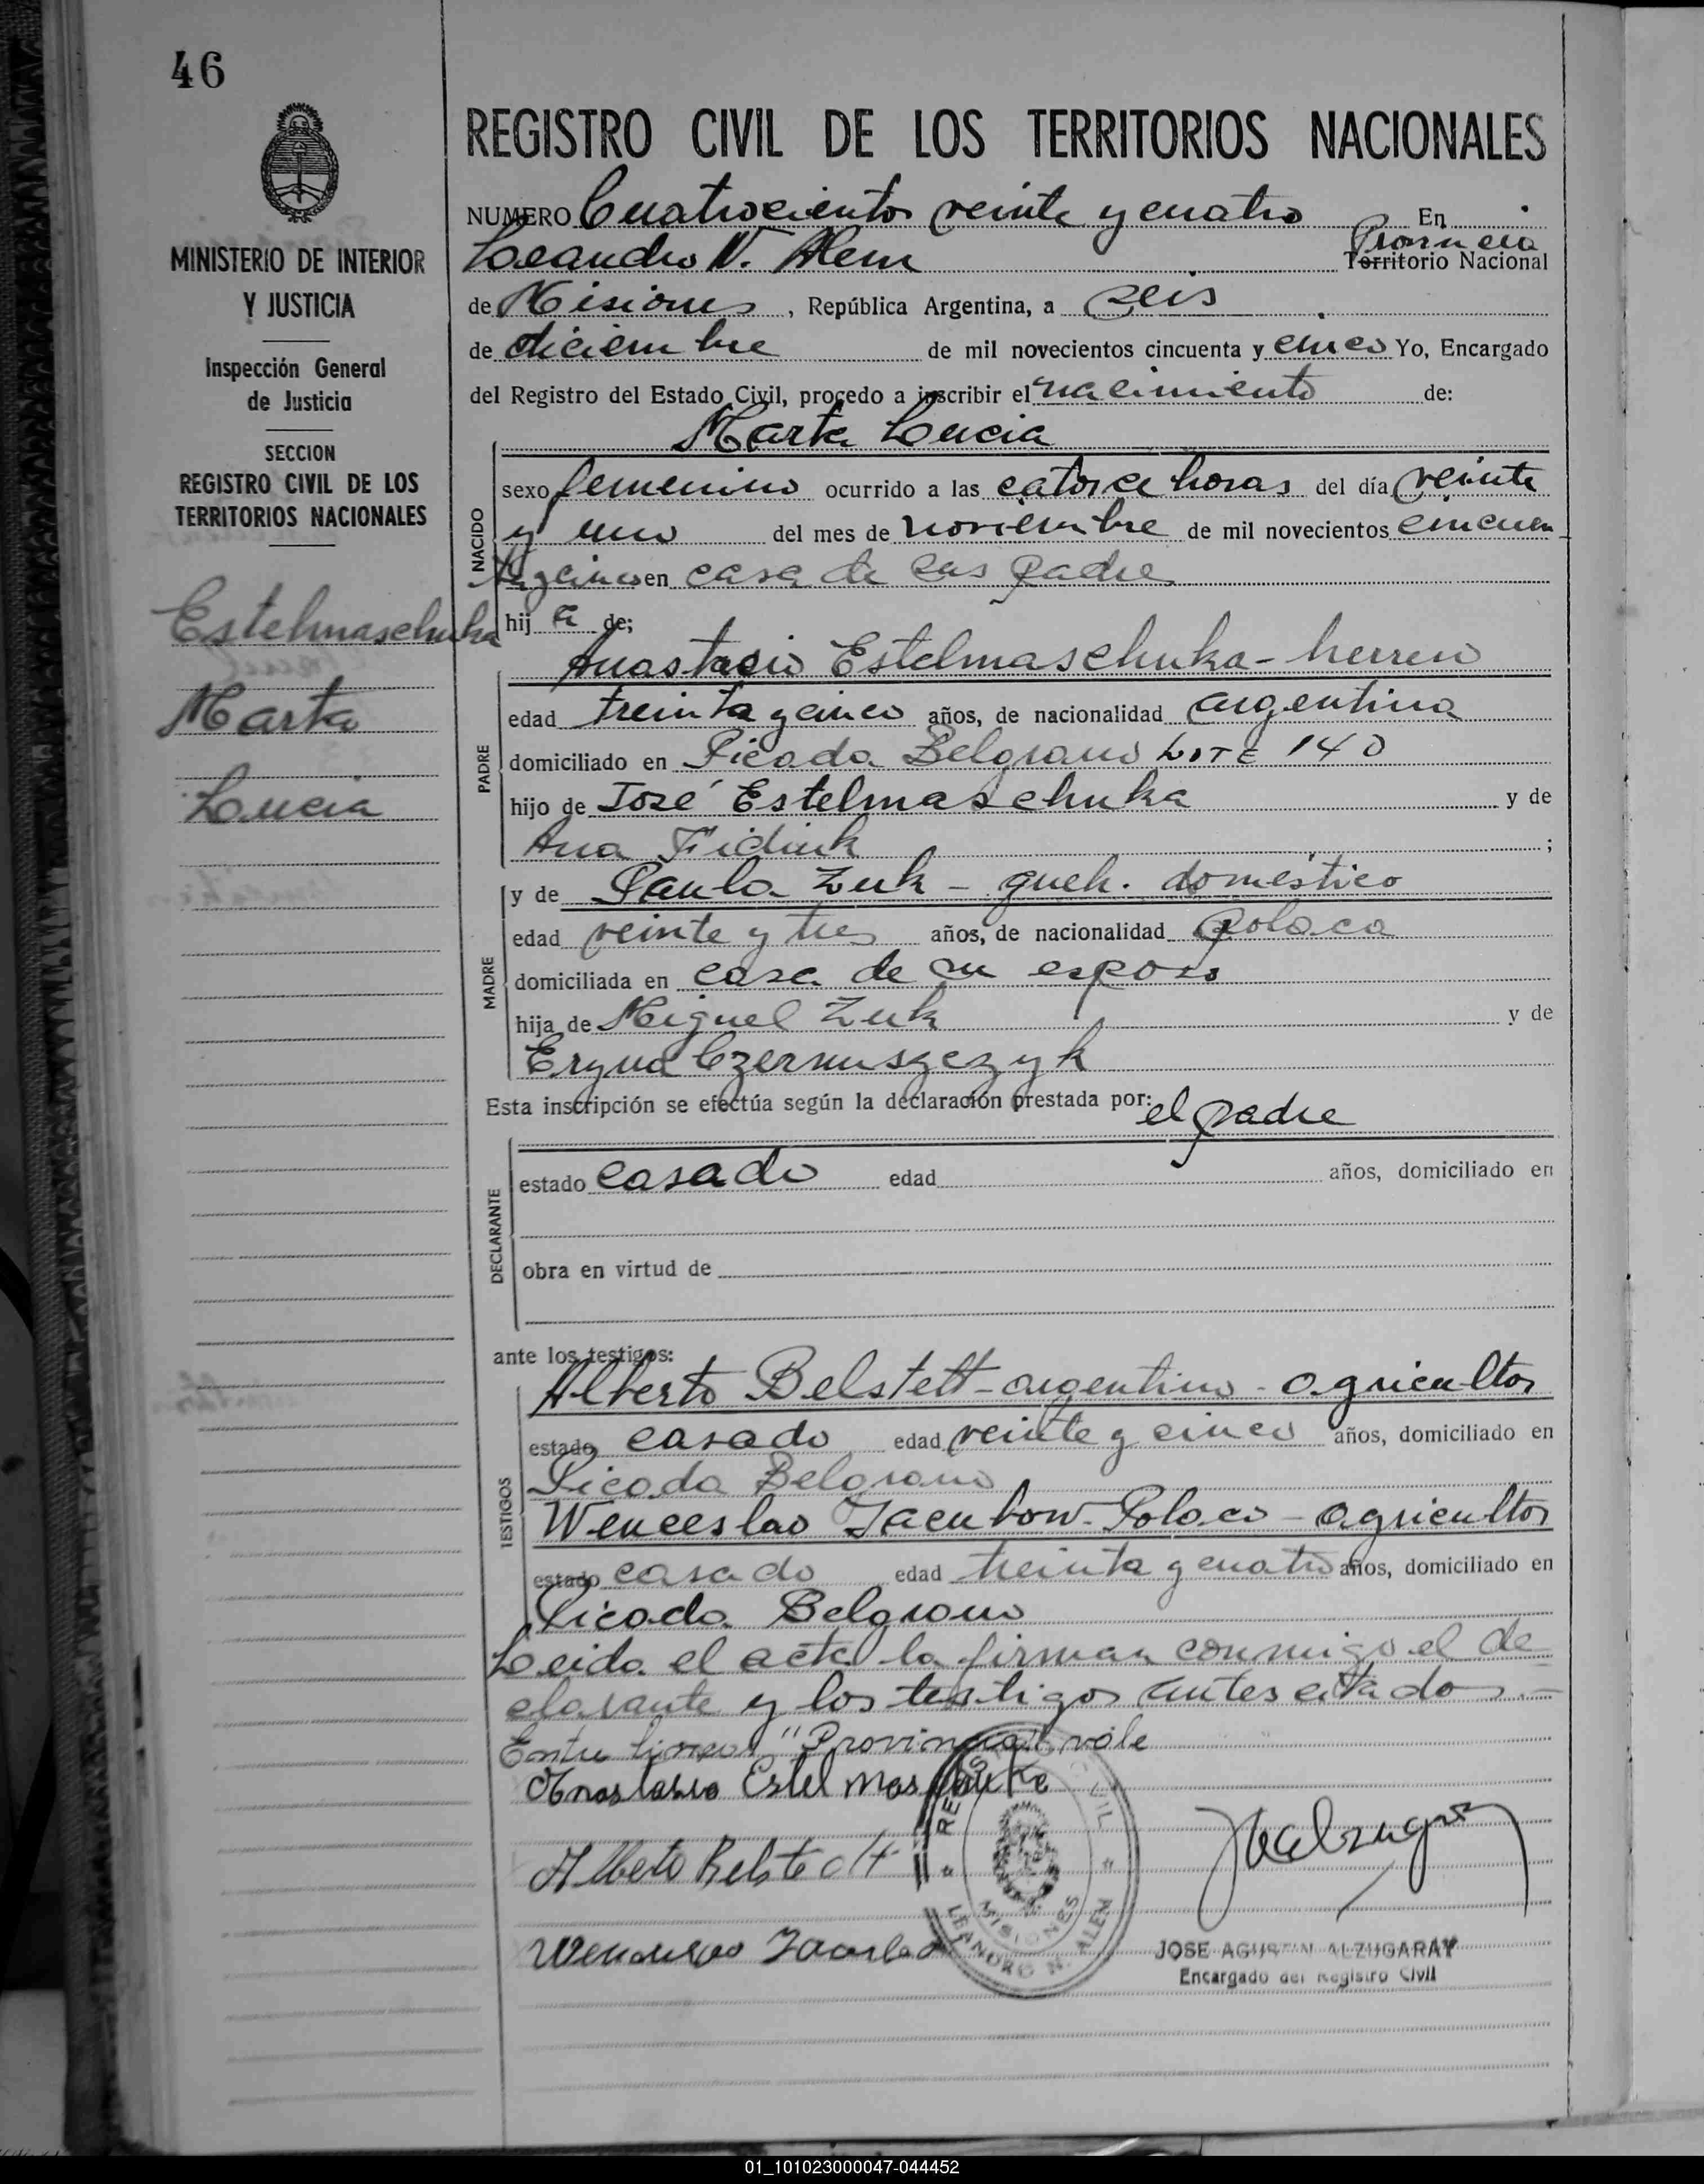 46
REGISTRO CIVIL DE LOS TERRITORIOS NACIONALES
MINISTERIO DE INTERIOR
Y JUSTICIA
Inspección General
de Justicia
SECCION
REGISTRO CIVIL DE LOS
TERRITORIOS NACIONALES
Estelmaschuka
Marta
Lucia
NUMERO Cuatrocientos veinte y cuatro En
Leandro N. Alem Provincia Territorio Nacional
de Misiones, República Argentina, a seis
de diciembre de mil novecientos cincuenta y cinco Yo, Encargado
del Registro del Estado Civil, procedo a inscribir el nacimiento de:
Marta Lucia
NACIDO
sexo femenino ocurrido a las catorce horas del día veinte
y uno del mes de noviembre de mil novecientos cincuen
ta y cinco en casa de sus padre
hij a de;
Anastacio Estelmaschuka - herrero
PADRE
edad treinta y cinco años, de nacionalidad argentina
domiciliado en Picada Belgrano LOTE 140
hijo de José Estelmaschuka y de
Ana Fidiuk ;
y de Paula Zuk - queh. doméstico
MADRE
edad veinte y tres años, de nacionalidad polaca
domiciliada en casa de su esposo
hija de Miguel Zuk y de
Eryna Czernuszczyk
Esta inscripción se efectúa según la declaración prestada por: el padre
DECLARANTE
estado casado edad años, domiciliado en
obra en virtud de
ante los testigos:
TESTIGOS
Alberto Belstett - argentino - agricultor
estado casado edad veinte y cinco años, domiciliado en
Picada Belgrano
Wenceslao Jacubow - Polaco - agricultor
estado casado edad treinta y cuatro años, domiciliado en
Picada Belgrano
Leida el acta la firman conmigo el de
clarante y los testigos antes citados.-
Entre lineas "Provincia" vale
Anastasio Estelmaschuke
Alberto Belstett
REGISTRO CIVIL
MISIONES
LEANDRO N. ALEM
JOSE AGUSTIN ALZUGARAY
Encargado del Registro Civil
01_101023000047-044452